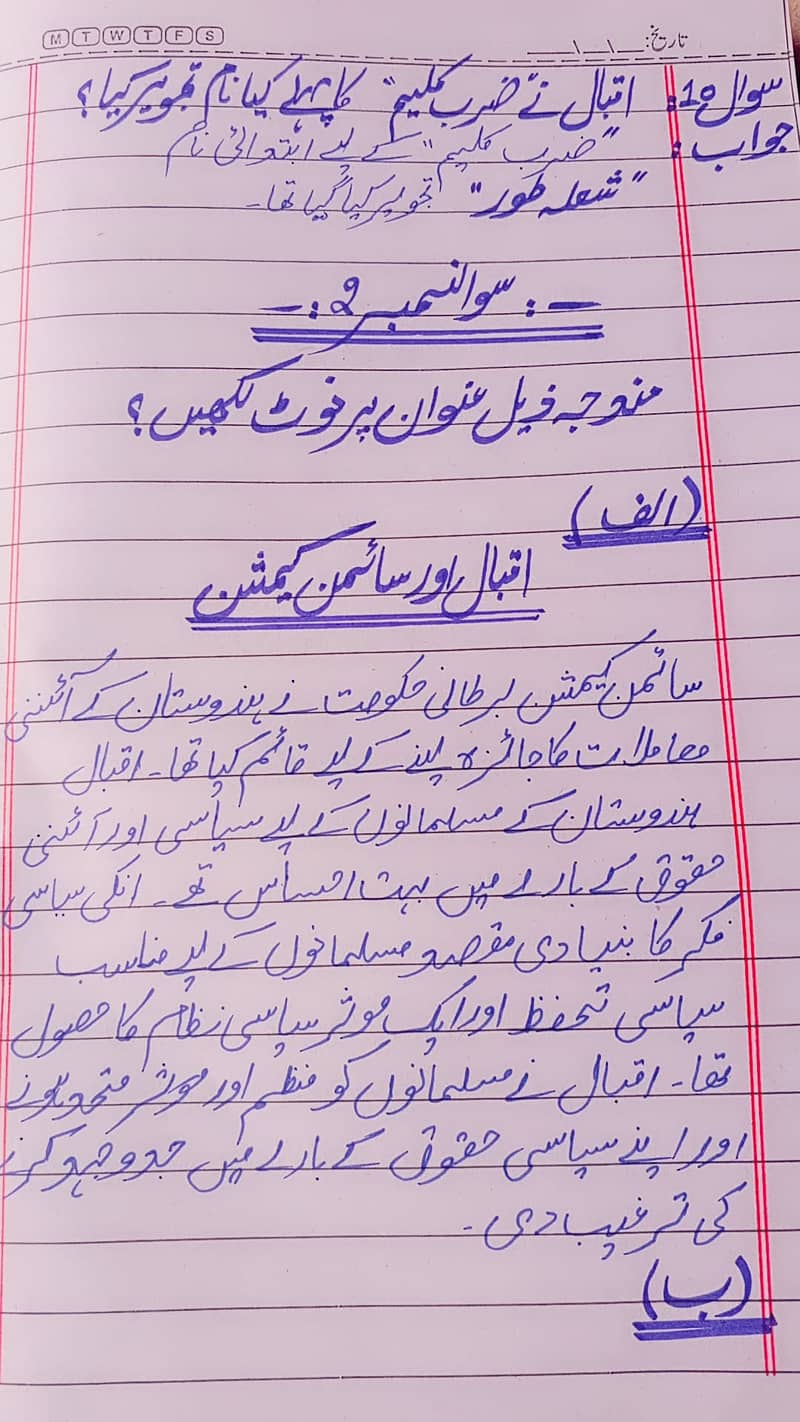 M T W T F S
تاریخ: ___\___\___
سوال 10: اقبال نے ضرب کلیم" کا پہلے کیا نام تجویز کیا؟
جواب: "ضرب کلیم" کے لیے ابتدائی نام
"شعلہ طور" تجویز کیا گیا تھا۔
-: سوال نمبر 2 :-
مندرجہ ذیل عنوان پر نوٹ لکھیں؟
(الف)
اقبال اور سائمن کمیشن
سائمن کمیشن برطانی حکومت نے ہندوستان کے آئینی
معاملات کا جائزہ لینے کے لیے قائم کیا تھا۔ اقبال
ہندوستان کے مسلمانوں کے لیے سیاسی اور آئینی
حقوق کے بارے میں بہت احساس تھے۔ انکی سیاسی
فکر کا بنیادی مقصد مسلمانوں کے لیے مناسب
سیاسی تحفظ اور ایک موثر سیاسی نظام کا حصول
تھا۔ اقبال نے مسلمانوں کو منظم اور موثر متحد ہونے
اور اپنے سیاسی حقوق کے بارے میں جدوجہد کرنے
کی ترغیب دی۔
(ب)